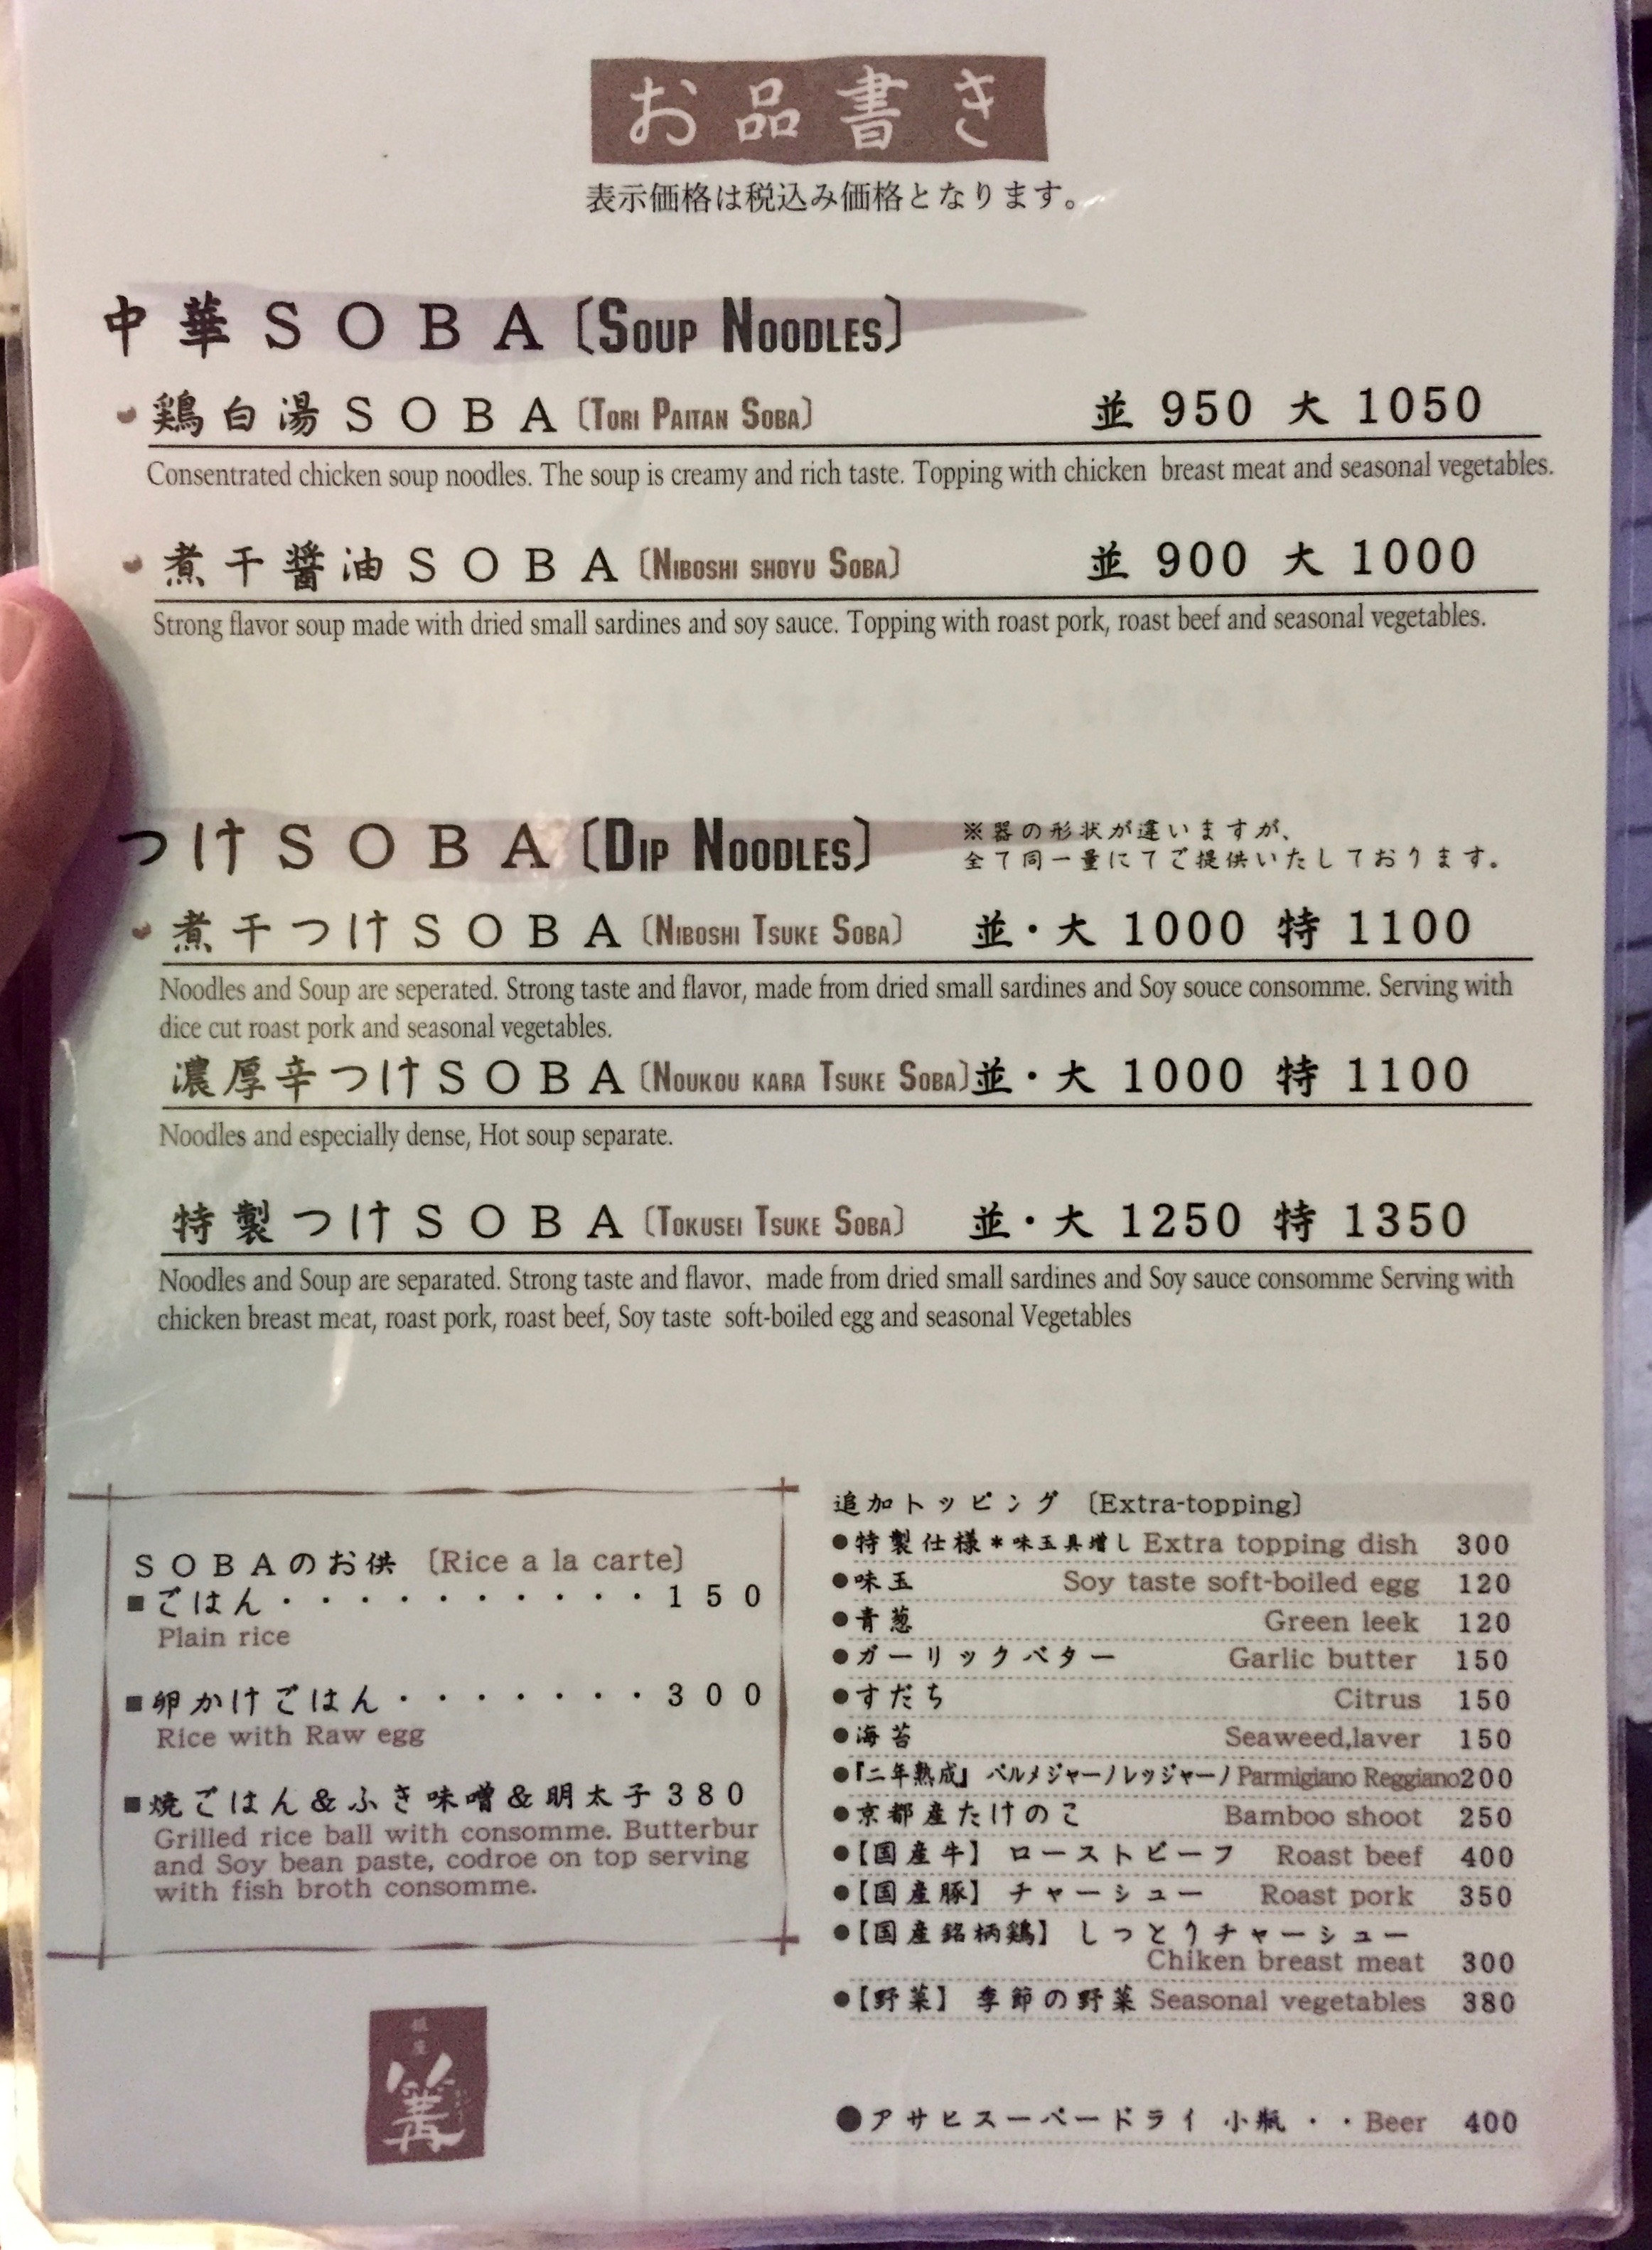 お品書き
表示価格は税込み価格となります。
中華SOBA〔SOUP NOODLES〕
鶏白湯SOBA〔TORI PAITAN SOBA〕 並 950 大 1050
Consentrated chicken soup noodles. The soup is creamy and rich taste. Topping with chicken breast meat and seasonal vegetables.
煮干醤油SOBA〔NIBOSHI SHOYU SOBA〕 並 900 大 1000
Strong flavor soup made with dried small sardines and soy sauce. Topping with roast pork, roast beef and seasonal vegetables.
つけSOBA〔DIP NOODLES〕
※器の形状が違いますが、
全て同一量にてご提供いたしております。
煮干つけSOBA〔NIBOSHI TSUKE SOBA〕 並・大 1000 特 1100
Noodles and Soup are seperated. Strong taste and flavor, made from dried small sardines and Soy souce consomme. Serving with
dice cut roast pork and seasonal vegetables.
濃厚辛つけSOBA〔NOUKOU KARA TSUKE SOBA〕並・大 1000 特 1100
Noodles and especially dense, Hot soup separate.
特製つけSOBA〔TOKUSEI TSUKE SOBA〕 並・大 1250 特 1350
Noodles and Soup are separated. Strong taste and flavor、made from dried small sardines and Soy sauce consomme Serving with
chicken breast meat, roast pork, roast beef, Soy taste soft-boiled egg and seasonal Vegetables
SOBAのお供〔Rice a la carte〕
■ごはん・・・・・・・・・・・150
Plain rice
■卵かけごはん・・・・・・・300
Rice with Raw egg
■焼ごはん&ふき味噌&明太子380
Grilled rice ball with consomme. Butterbur
and Soy bean paste, codroe on top serving
with fish broth consomme.
追加トッピング〔Extra-topping〕
●特製仕様*味玉具増し Extra topping dish 300
●味玉 Soy taste soft-boiled egg 120
●青葱 Green leek 120
●ガーリックバター Garlic butter 150
●すだち Citrus 150
●海苔 Seaweed,laver 150
●『二年熟成』 パルメジャーノレッジャーノ Parmigiano Reggiano200
●京都産たけのこ Bamboo shoot 250
●【国産牛】 ローストビーフ Roast beef 400
●【国産豚】 チャーシュー Roast pork 350
●【国産銘柄鶏】 しっとりチャーシュー
Chiken breast meat 300
●【野菜】 季節の野菜 Seasonal vegetables 380
銀座
篝
●アサヒスーパードライ 小瓶・・Beer 400